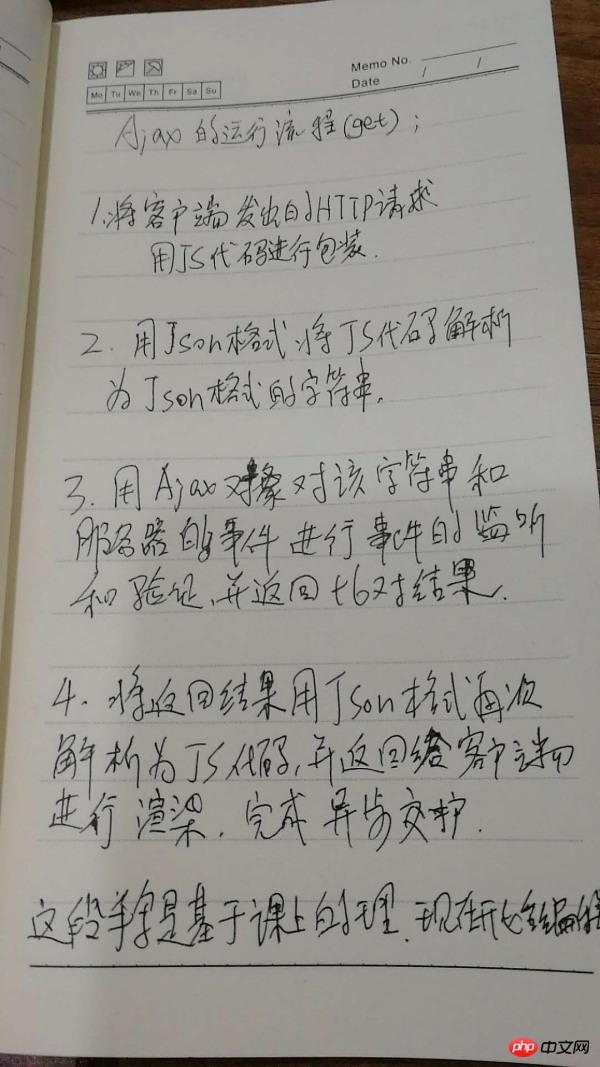 Memo No.
Date / /
Mo Tu We Th Fr Sa Su
Ajax的运行流程(get);
1.将客户端发出的HTTP请求
用JS代码进行包装.
2.用Json格式将JS代码解析
为Json格式的字符串.
3.用Ajax对象对该字符串和
服务器的事件进行事件的监听
和验证,并返回比对结果.
4.将返回结果用Json格式再次
解析为JS代码,并返回给客户端
进行渲染.完成异步交护.
这段手写是基于课上的理.现在开始编
php 中文网